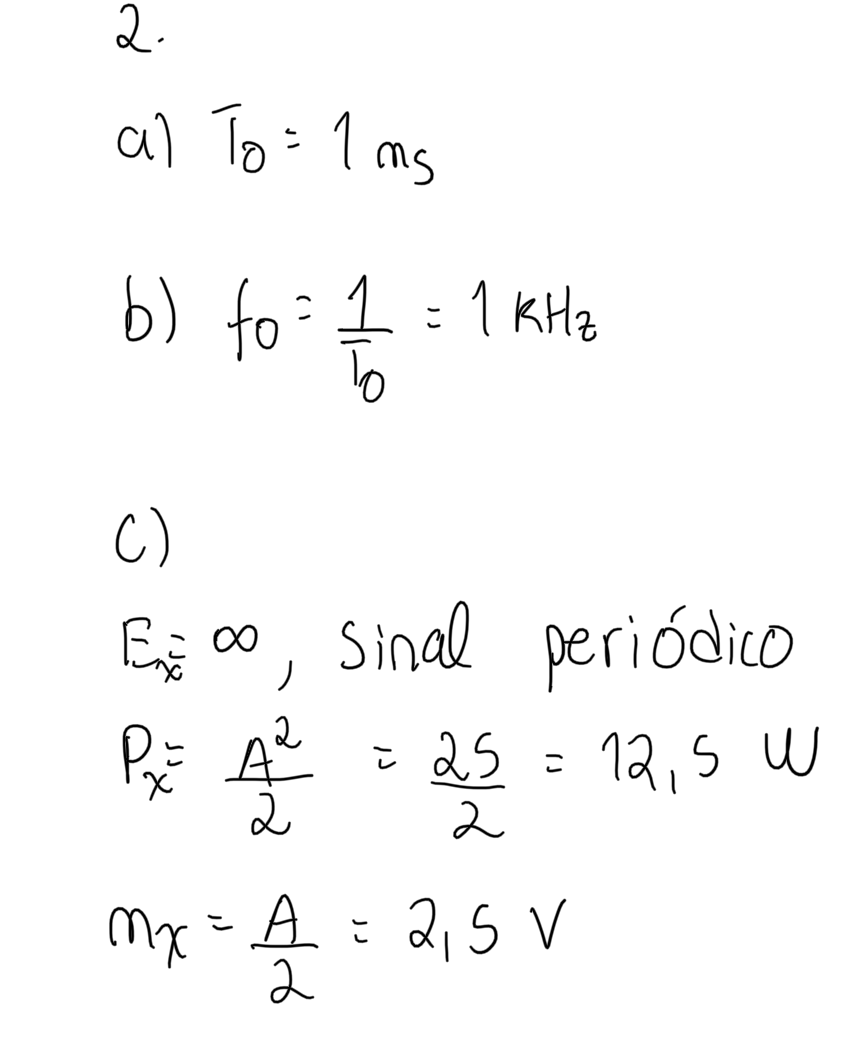 2.
a) T0 = 1 ms
b) f0 = 1/T0 = 1 KHz
c)
Ex = ∞, sinal periódico
Px = A²/2 = 25/2 = 12,5 W
mx = A/2 = 2,5 V